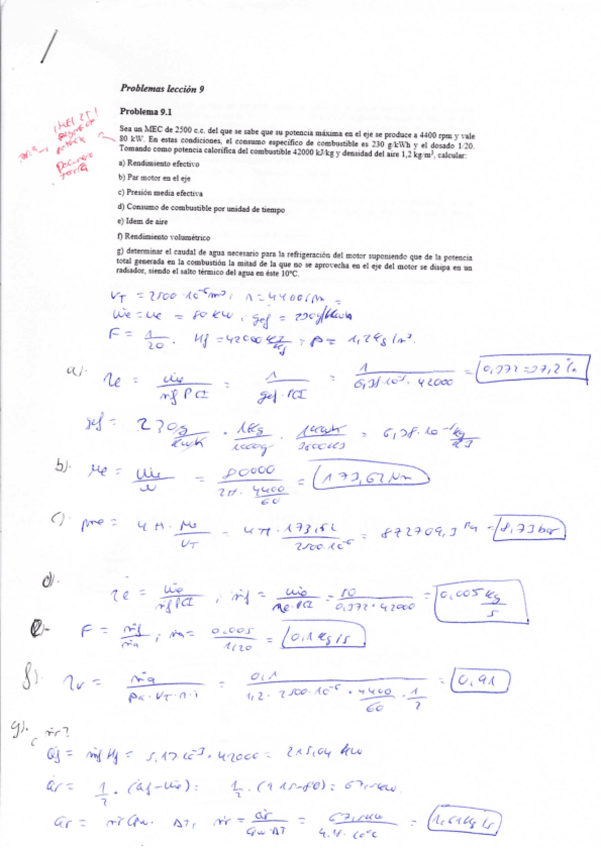 Problemas lección 9
Problema 9.1
Sea un MEC de 2500 c.c. del que se sabe que su potencia máxima en el eje se produce a 4400 rpm y vale
80 kW. En estas condiciones, el consumo específico de combustible es 230 g/kWh y el dosado 1:20.
Tomando como potencia calorífica del combustible 42000 kJ/kg y densidad del aire 1,2 kg/m³, calcular:
a) Rendimiento efectivo
b) Par motor en el eje
c) Presión media efectiva
d) Consumo de combustible por unidad de tiempo
e) Idem de aire
f) Rendimiento volumétrico
g) determinar el caudal de agua necesario para la refrigeración del motor suponiendo que de la potencia
total generada en la combustión la mitad de la que no se aprovecha en el eje del motor se disipa en un
radiador, siendo el salto térmico del agua en éste 10ºC.
V_T = 2500·10⁻⁶ m³; n = 4400 rpm
= 80 kW; gef = 230 g/kWh
F = 1/20 · Hf = 42000 kJ/kg; ρ = 1,2 kg/m³
a). = 1/(gef·PCI) = = 0,372 = 37,2 %
gef = 230 g/kWh · 1 kg/1000 g · 1 kWh/3600 kJ = 6,38·10⁻⁵ kg/kJ
b). Me = = 80000/(2π·4400/60) = 173,62 Nm
c). pme = 4π·Me/V_T = 4π·173,62/2500·10⁻⁶ = 872709,3 Pa = 8,73 bar
d). = 80/(0,372·42000) = 0,005 kg/s
e). F = ṁf/ṁa; ṁa = 0,005/1/20 = 0,1 kg/s
f). = 0,1/(1,2·2500·10⁻⁶·4400/60·1/2) = 0,91
g).
= 5,12·10⁻³·42000 = 215,04 kW
= 1/2 · (215-80) = 67,5 kW
= 1,61 kg/s